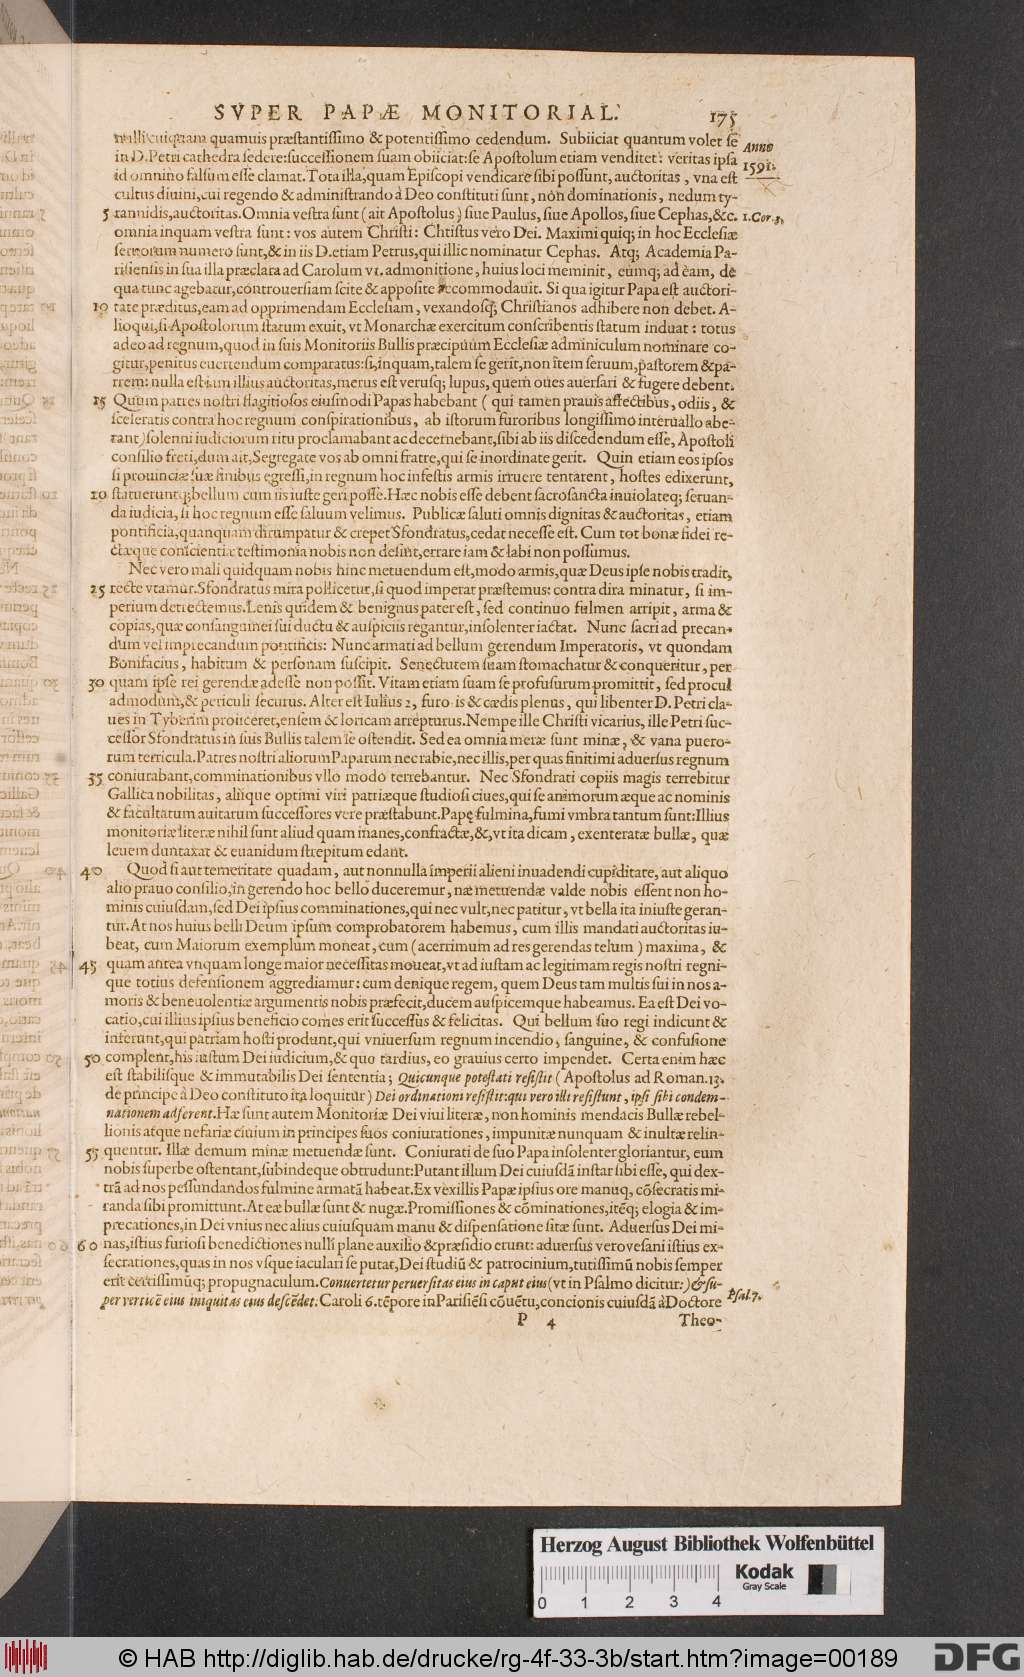 SVPER PAPÆ MONITORIAL. 175
nulli cuiquam quamuis præstantissimo & potentissimo cedendum. Subiiciat quantum volet se
Anno
in D. Petri cathedra sedere: successionem suam obiiciat: se Apostolum etiam venditet: veritas ipsa
1591.
id omnino falsum esse clamat. Tota illa, quam Episcopi vendicare sibi possunt, auctoritas, vna est
cultus diuini, cui regendo & administrando à Deo constituti sunt, non dominationis, nedum ty-
5 rannidis, auctoritas. Omnia vestra sunt (ait Apostolus) siue Paulus, siue Apollos, siue Cephas, &c. 1. Cor. 3.
omnia inquam vestra sunt: vos autem Christi: Christus vero Dei. Maximi quiq; in hoc Ecclesiæ
seruorum numero sunt, & in iis D. etiam Petrus, qui illic nominatur Cephas. Atq; Academia Pa-
risiensis in sua illa præclara ad Carolum VI. admonitione, huius loci meminit, eumq; ad eam, de
qua tunc agebatur, controuersiam scite & apposite accommodauit. Si qua igitur Papa est auctori-
10 tate præditus, eam ad opprimendam Ecclesiam, vexandosq; Christianos adhibere non debet. A-
lioqui, si Apostolorum statum exuit, vt Monarchæ exercitum conscribentis statum induat: totus
adeo ad regnum, quod in suis Monitoriis Bullis præcipuum Ecclesiæ adminiculum nominare co-
gitur, penitus euertendum comparatus: si, inquam, talem se gerit, non item seruum, pastorem & pa-
trem: nulla est iam illius auctoritas, merus est verusq; lupus, quem oues auersari & fugere debent.
15 Quum patres nostri flagitiosos eiusmodi Papas habebant ( qui tamen prauis affectibus, odiis, &
sceleratis contra hoc regnum conspirationibus, ab istorum furoribus longissimo interuallo abe-
rant) solenni iudiciorum ritu proclamabant ac decernebant, sibi ab iis discedendum esse, Apostoli
consilio freti, dum ait, Segregate vos ab omni fratre, qui se inordinate gerit. Quin etiam eos ipsos
si prouinciæ suæ finibus egressi, in regnum hoc infestis armis irruere tentarent, hostes edixerunt,
20 statueruntq; bellum cum iis iuste geri posse. Hæc nobis esse debent sacrosancta inuiolateq; seruan-
da iudicia, si hoc regnum esse saluum velimus. Publicæ saluti omnis dignitas & auctoritas, etiam
pontificia, quanquam dirumpatur & crepet Sfondratus, cedat necesse est. Cum tot bonæ fidei re-
ctæque conscientiæ testimonia nobis non desint, errare iam & labi non possumus.
Nec vero mali quidquam nobis hinc metuendum est, modo armis, quæ Deus ipse nobis tradit,
25 recte vtamur. Sfondratus mira pollicetur, si quod imperat præstemus: contra dira minatur, si im-
perium detrectemus. Lenis quidem & benignus pater est, sed continuo fulmen arripit, arma &
copias, quæ consanguinei sui ductu & auspiciis regantur, insolenter iactat. Nunc sacri ad precan-
dum vel imprecandum pontificis: Nunc armati ad bellum gerendum Imperatoris, vt quondam
Bonifacius, habitum & personam suscipit. Senectutem suam stomachatur & conqueritur, per
30 quam ipse rei gerendæ adesse non possit. Vitam etiam suam se profusurum promittit, sed procul
admodum, & periculi securus. Alter est Iulius 2, furoris & cædis plenus, qui libenter D. Petri cla-
ues in Tyberim proiiceret, ensem & loricam arrepturus. Nempe ille Christi vicarius, ille Petri suc-
cessor Sfondratus in suis Bullis talem se ostendit. Sed ea omnia meræ sunt minæ, & vana puero-
rum terricula. Patres nostri aliorum Paparum nec rabie, nec illis, per quas finitimi aduersus regnum
35 coniurabant, comminationibus vllo modo terrebantur. Nec Sfondrati copiis magis terrebitur
Gallica nobilitas, aliique optimi viri patriæque studiosi ciues, qui se animorum æque ac nominis
& facultatum auitarum successores vere præstabunt. Papę fulmina, fumi vmbra tantum sunt: Illius
monitoriæ literæ nihil sunt aliud quam inanes, confractæ, &, vt ita dicam, exenteratæ bullæ, quæ
leuem duntaxat & euanidum strepitum edant.
40 Quod si aut temeritate quadam, aut nonnulla imperii alieni inuadendi cupiditate, aut aliquo
alio prauo consilio, in gerendo hoc bello duceremur, næ metuendæ valde nobis essent non ho-
minis cuiusdam, sed Dei ipsius comminationes, qui nec vult, nec patitur, vt bella ita iniuste geran-
tur. At nos huius belli Deum ipsum comprobatorem habemus, cum illis mandati auctoritas iu-
beat, cum Maiorum exemplum moneat, cum (acerrimum ad res gerendas telum) maxima, &
45 quam antea vnquam longe maior necessitas moueat, vt ad iustam ac legitimam regis nostri regni-
que totius defensionem aggrediamur: cum denique regem, quem Deus tam multis sui in nos a-
moris & beneuolentiæ argumentis nobis præfecit, ducem auspicemque habeamus. Ea est Dei vo-
catio, cui illius ipsius beneficio comes erit successus & felicitas. Qui bellum suo regi indicunt &
inferunt, qui patriam hosti produnt, qui vniuersum regnum incendio, sanguine, & confusione
50 complent, his iustum Dei iudicium, & quo tardius, eo grauius certo impendet. Certa enim hæc
est stabilisque & immutabilis Dei sententia; Quicunque potestati resistit (Apostolus ad Roman. 13.
de principe à Deo constituto ita loquitur) Dei ordinationi resistit: qui vero illi resistunt, ipsi sibi condem-
nationem adferent. Hæ sunt autem Monitoriæ Dei viui literæ, non hominis mendacis Bullæ rebel-
lionis atque nefariæ ciuium in principes suos coniurationes, impunitæ nunquam & inultæ relin-
55 quentur. Illæ demum minæ metuendæ sunt. Coniurati de suo Papa insolenter gloriantur, eum
nobis superbe ostentant, subindeque obtrudunt: Putant illum Dei cuiusdā instar sibi esse, qui dex-
trā ad nos pessundandos fulmine armatā habeat. Ex vexillis Papæ ipsius ore manuq, cōsecratis mi-
randa sibi promittunt. At eæ bullæ sunt & nugæ. Promissiones & cōminationes, itēq; elogia & im-
precationes, in Dei vnius nec alius cuiusquam manu & dispensatione sitæ sunt. Aduersus Dei mi-
60 nas, istius furiosi benedictiones nulli plane auxilio & præsidio erunt: aduersus vero vesani istius ex-
secrationes, quas in nos vsque iaculari se putat, Dei studiū & patrocinium, tutissimū nobis semper
erit certissimūq; propugnaculum. Conuertetur peruersitas eius in caput eius (vt in Psalmo dicitur:) & su-
per verticē eius iniquitas eius descēdet. Caroli 6. tēpore in Parisiēsi cōuētu, concionis cuiusdā à Doctore Psal. 7.
P 4 Theo-
Herzog August Bibliothek Wolfenbüttel
Kodak
Gray Scale
0 1 2 3 4
© HAB http://diglib.hab.de/drucke/rg-4f-33-3b/start.htm?image=00189
DFG